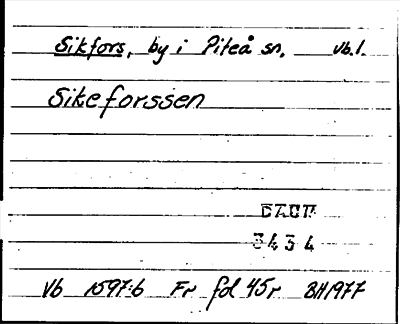 Sikfors, by i Piteå sn, Vb.l.
Sikeforssen
DAUM
3434
Vb 1597:6 Fr fol 45r BH1977